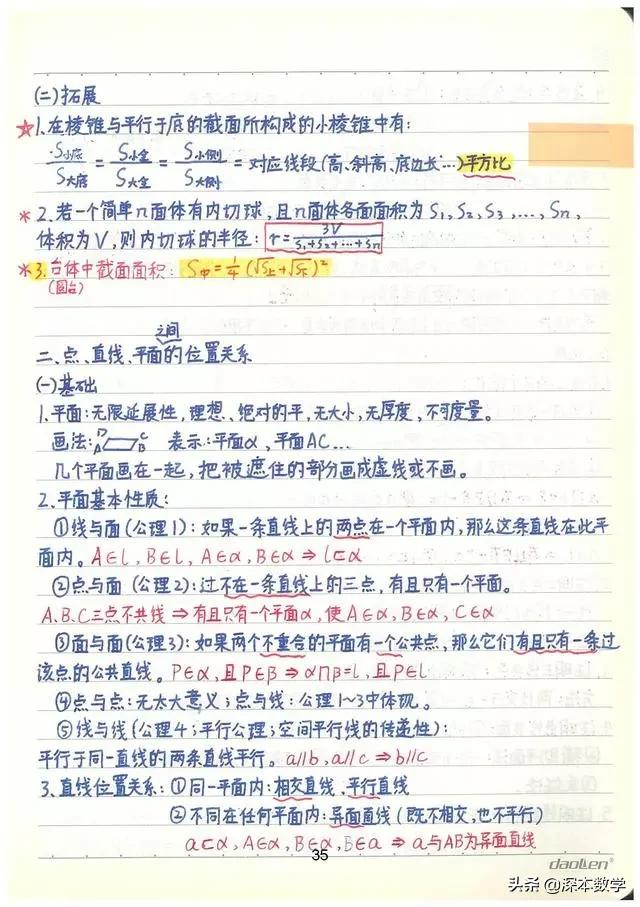 (二)拓展
☆1.在棱锥与平行于底的截面所构成的小棱锥中有:
S小底/S大底 = S小全/S大全 = S小侧/S大侧 = 对应线段(高、斜高、底边长…)平方比
*2.若一个简单n面体有内切球,且n面体各面面积为S₁,S₂,S₃,…,Sn,
体积为V,则内切球的半径: r=3V/(S₁+S₂+…+Sn)
*3.台体中截面面积: S中=¼(√S上+√S下)²
(圆台)
之间
二、点、直线、平面的位置关系
(一)基础
1.平面:无限延展性,理想、绝对的平,无大小,无厚度,不可度量。
画法: D C A B 表示:平面α,平面AC…
几个平面画在一起,把被遮住的部分画成虚线或不画。
2.平面基本性质:
①线与面(公理1):如果一条直线上的两点在一个平面内,那么这条直线在此平
面内。A∈l,B∈l,A∈α,B∈α⇒l⊂α
②点与面(公理2):过不在一条直线上的三点,有且只有一个平面。
A.B.C三点不共线⇒有且只有一个平面α,使A∈α,B∈α,C∈α
③面与面(公理3):如果两个不重合的平面有一个公共点,那么它们有且只有一条过
该点的公共直线。P∈α,且P∈β⇒α∩β=l,且P∈l
④点与点:无太大意义;点与线:公理1~3中体现。
⑤线与线(公理4;平行公理;空间平行线的传递性):
平行于同一直线的两条直线平行。a∥b,a∥c⇒b∥c
3.直线位置关系:①同一平面内:相交直线、平行直线
②不同在任何平面内:异面直线(既不相交,也不平行)
a⊂α,A∈α,B∈α,B∈a⇒a与AB为异面直线
35
daoLen®
头条@深本数学